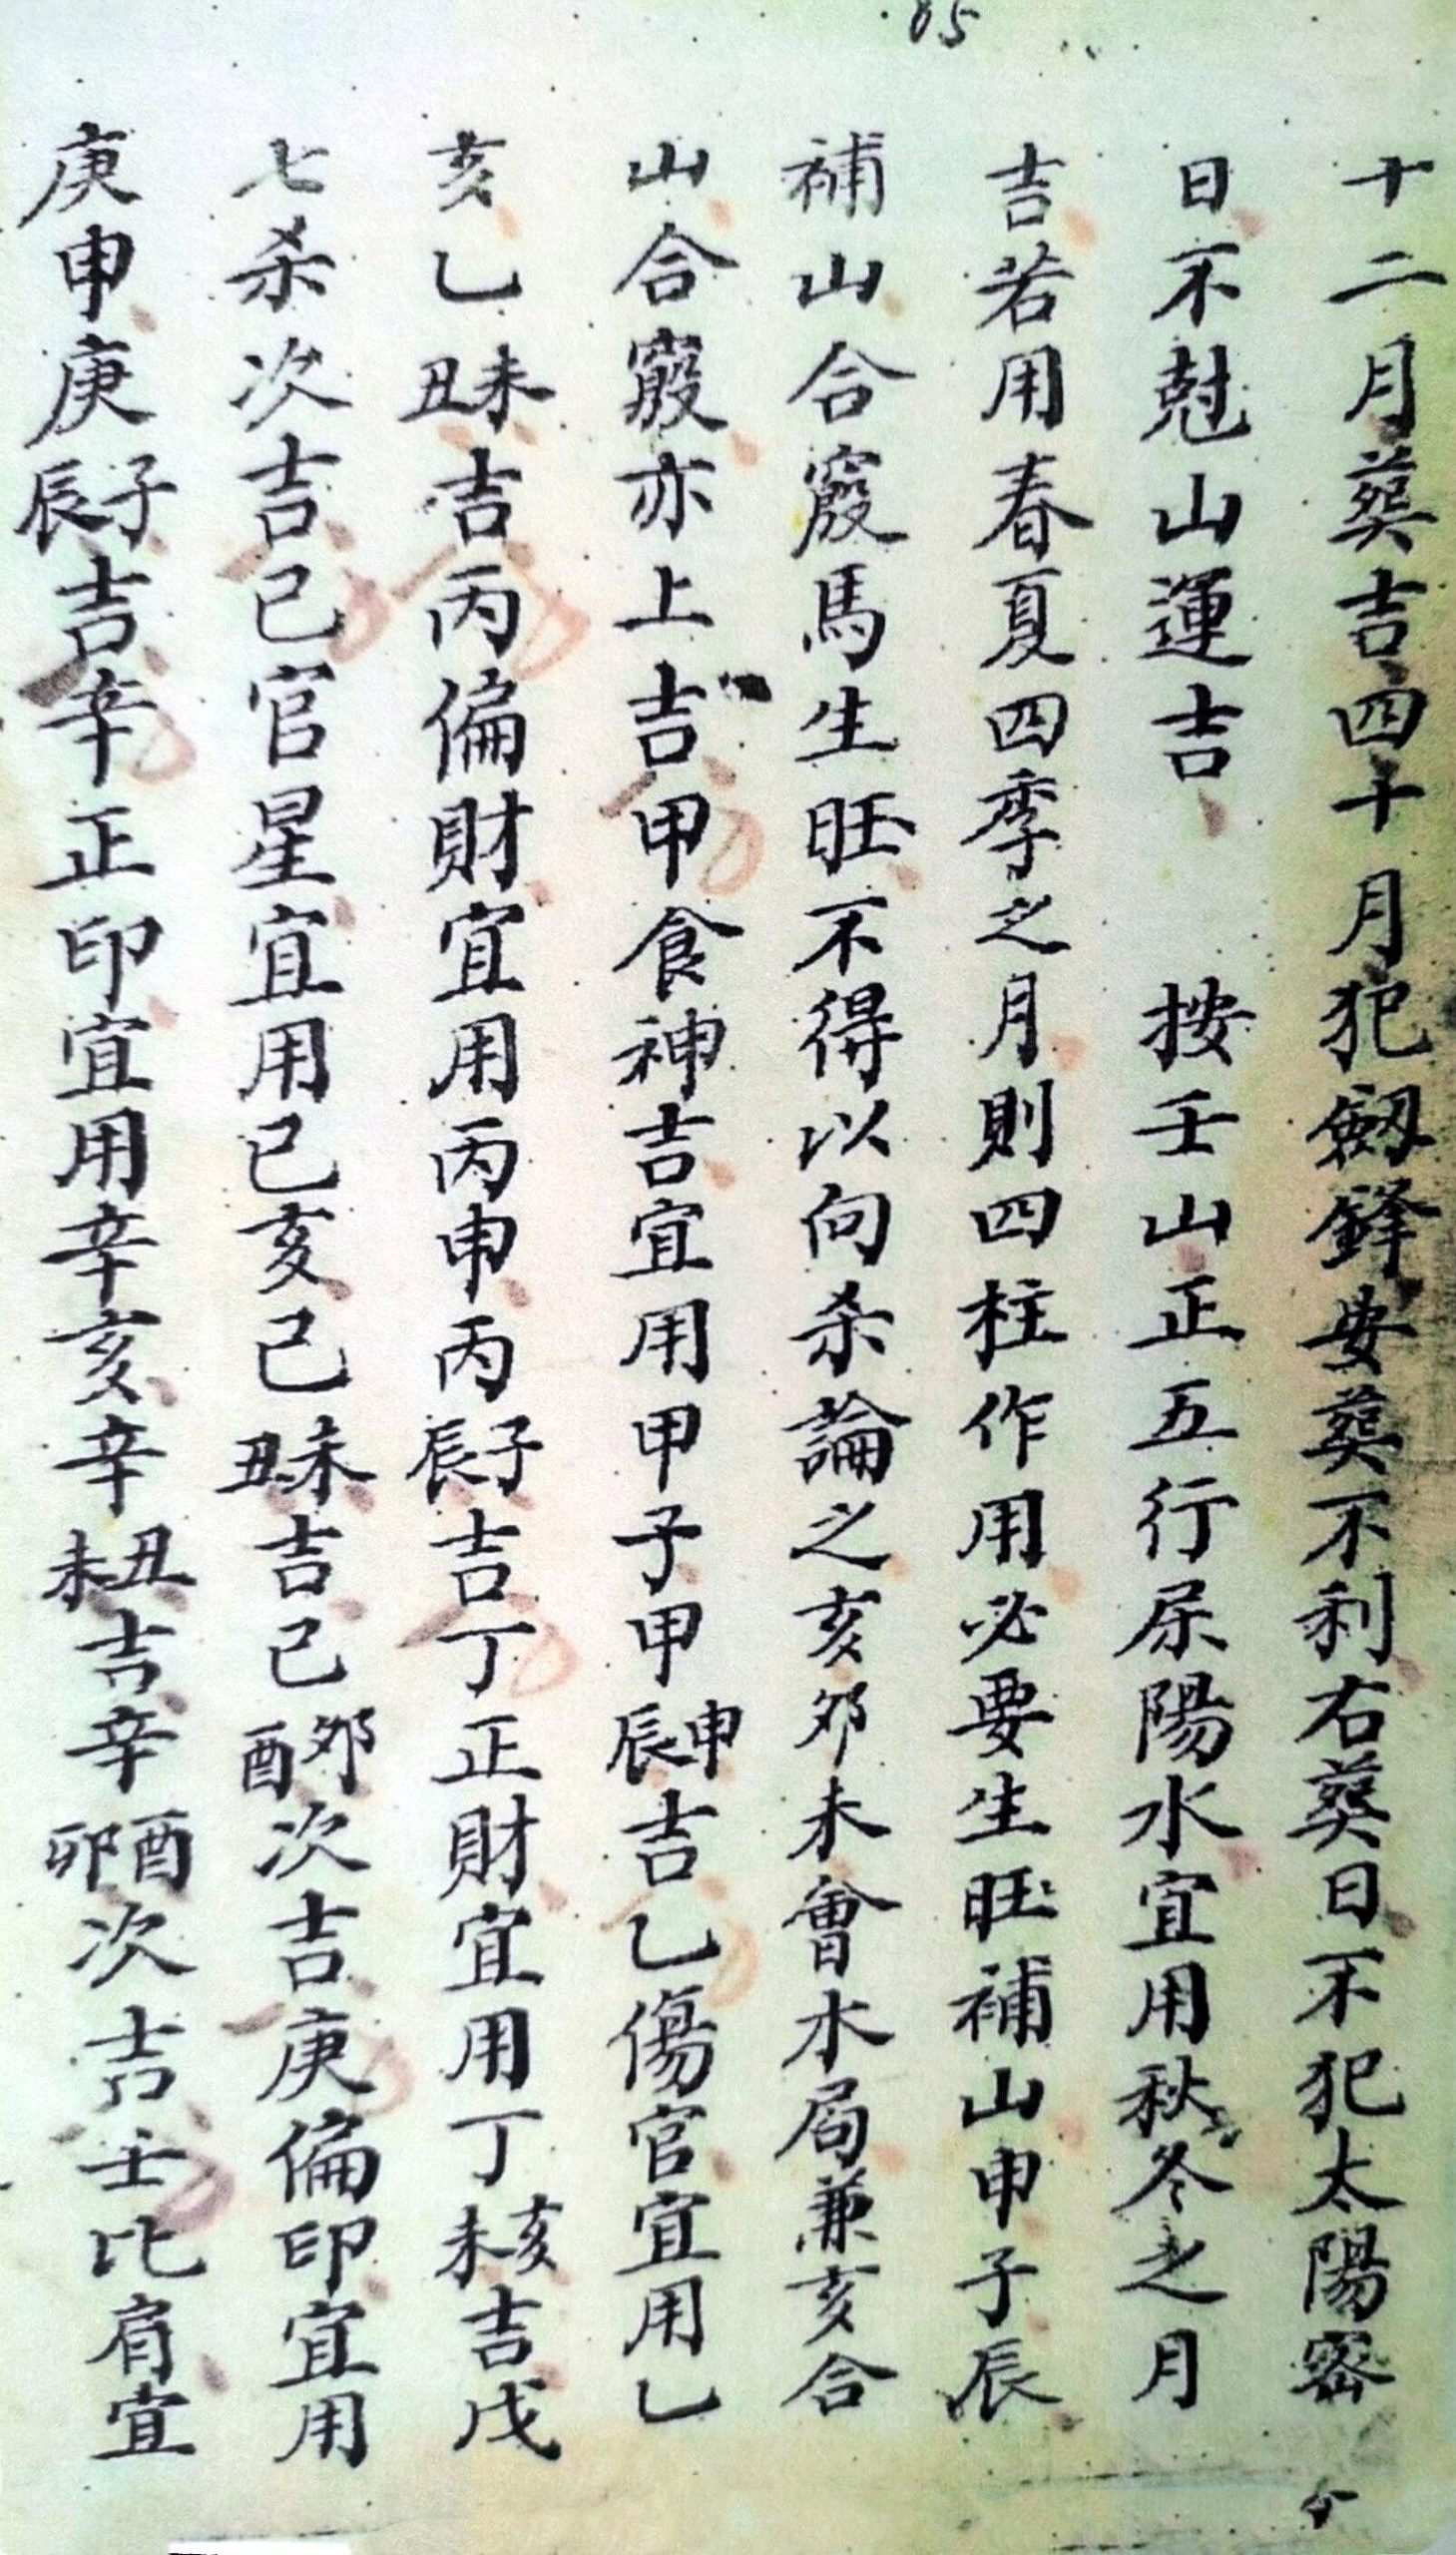 05
十二月葵吉四十月犯劔鋒安葵不利右葵日不犯太陽密
日不尅山運吉　按壬山正五行屬陽水宜用秋冬之月
吉若用春夏四季之月則四柱作用必要生旺補山申子辰
補山合竅馬生旺不得以向杀論之亥夘未會木局兼亥合
山合竅亦上吉甲食神吉宜用甲子甲申辰吉乙傷官宜用乙
亥乙未丑吉丙偏財宜用丙申丙子辰吉丁正財宜用丁亥未吉戊
七杀次吉己官星宜用已亥己未丑吉己夘酉次吉庚偏印宜用
庚申庚子辰吉辛正印宜用辛亥辛丑未吉辛酉卯次吉壬比肩宜